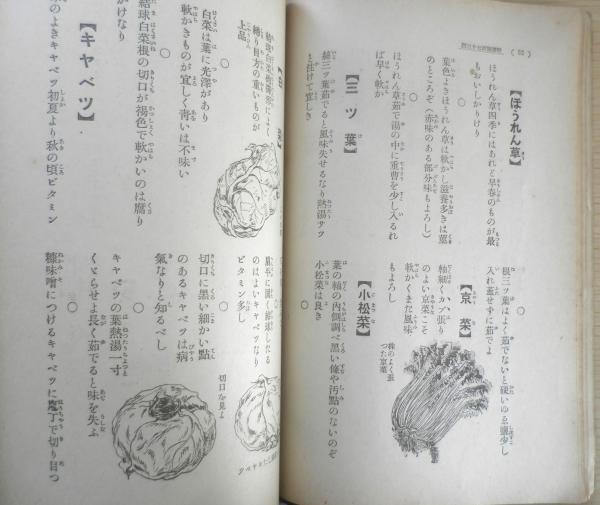 (60)
【ほうれん草】
ほうれん草四季にはあれど早春のものが最
もおいしかりけり
○
葉色よきほうれん草は軟かし滋養多きは葉
のところぞ(赤味のある部分味もよろし)
○
ほうれん草茹で湯の中に重曹を少し入るれ
ば早く軟か
【三ツ葉】
絲三ツ葉茹でると風味失せるなり熱湯サツ
と注けて宜しく
○
根三ツ葉はよく茹でないと硬いゆゑ鹽少し
入れ蓋せずに茹でよ
【京菜】
軸細くカブ張り
のよい京菜こそ
軟かくまた風味
もよろし
株のよく張
つた京菜
【小松菜】
葉の軸の內側調べ黒い條や汚點のないのぞ
小松菜は良き
○
締り目方の重いものが
上品
○
白菜は葉に光澤があり
軟かきものが宜しく靑いは不味い
○
結球白菜根の切口が褐色で軟かいのは腐り
かけなり
【キャベツ】
のよきキャベツ初夏より秋の頃ビタミン
のはよいキャベツなり
ビタミン多し
○
切口に黒い細かい點
のあるキャベツは病
氣なりと知るべし
○
キャベツの葉熱湯一寸
くぐらせよ長く茹でると味を失ふ
○
糠味噌につけるキャベツに庖丁で切り目つ
切口を見よ